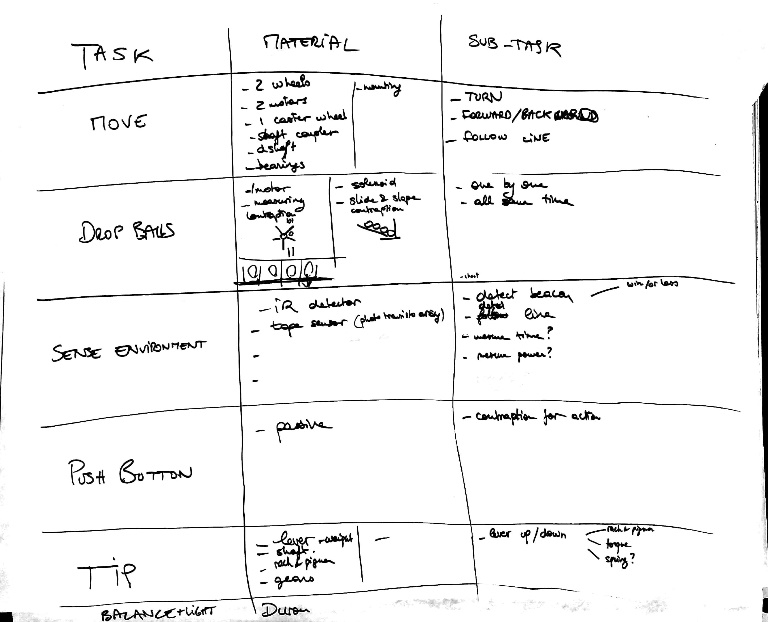 TASK
MATERIAL
SUB-TASK
MOVE
- 2 wheels
- 2 motors
- 1 caster wheel
- shaft coupler
- dshaft
- bearings
- mounting
- TURN
- FORWARD/BACKWARD
- FOLLOW LINE
DROP BALLS
- 1 motor
- measuring
contraption
- solenoid
- slide & slope
contraption
- one by one
- all same time
- shoot
SENSE ENVIRONMENT
- IR detector
- tape sensor (photo transisto array)
-
-
- detect beacon
win/or loss
detect
- line
- measure time?
- measure power?
PUSH BUTTON
- passive
- contraption for action
TIP
- lever - weight
- shaft.
- rack & pignon
- gears
-
- lever up/down
rack & pignon
torque
spring?
BALANCE + LIGHT
Duron